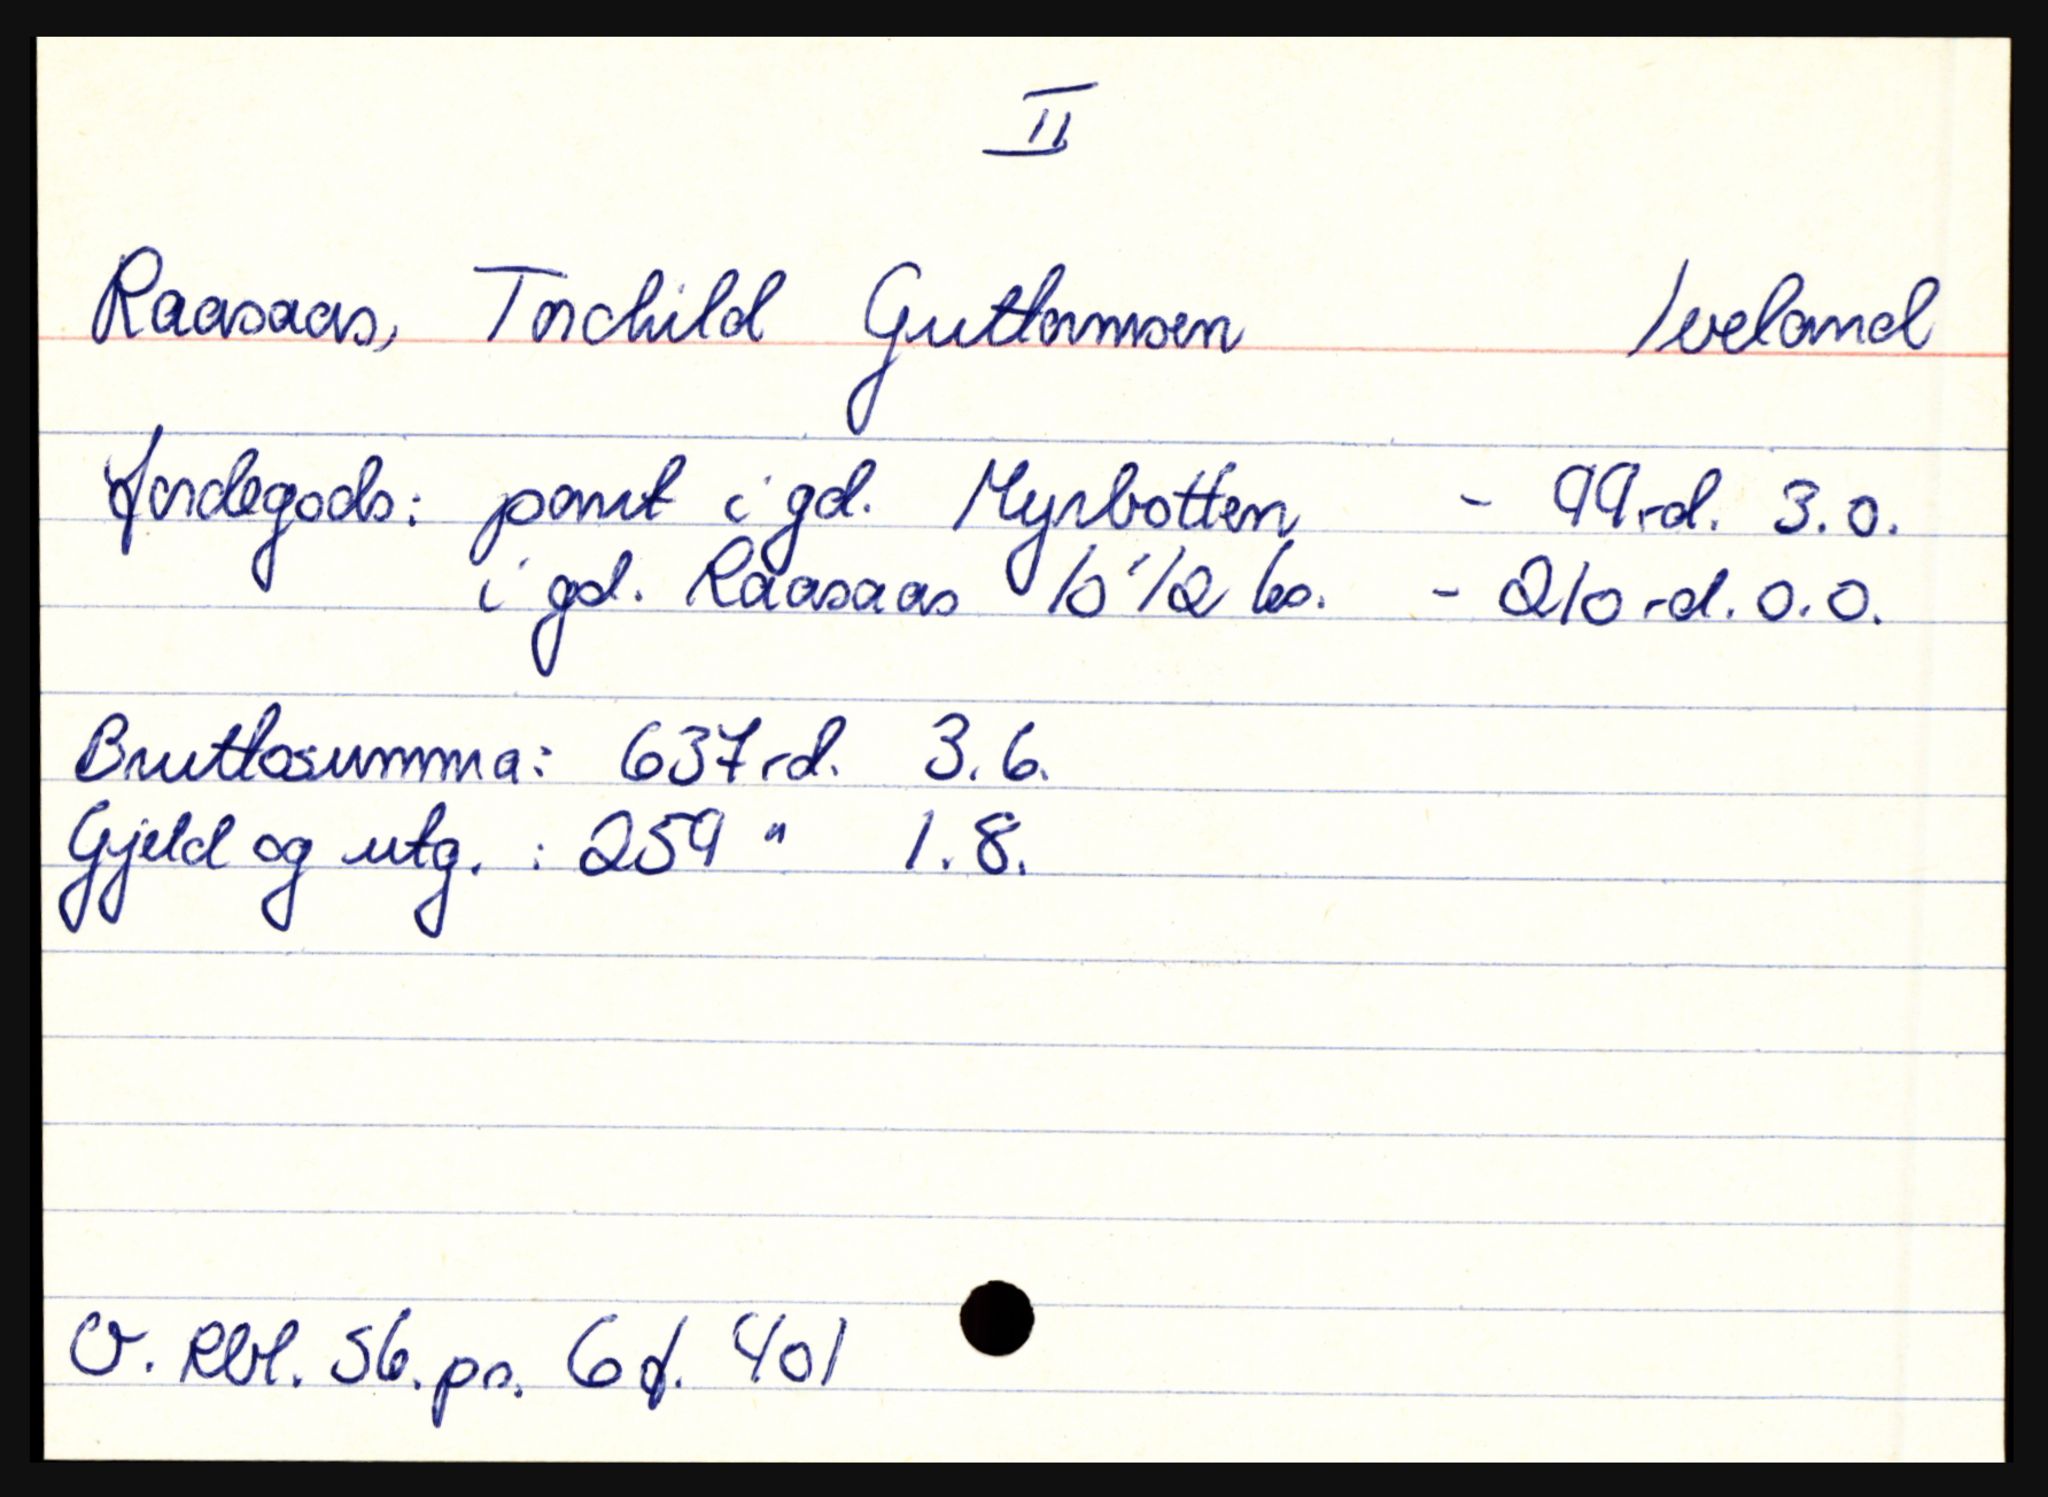 II
Raasaas, Torchild Guttormsen Iveland
Jordegods: pant i gd. Myrbotten - 99 rd. 3.0.
i gd. Raasaas 10 1/2 ks. - 210 rd. 0.0.
Bruttosumma: 637 rd. 3.6.
Gjeld og utg. : 259 " 1.8.
O. Rbl. 56. pr. 6 f. 401